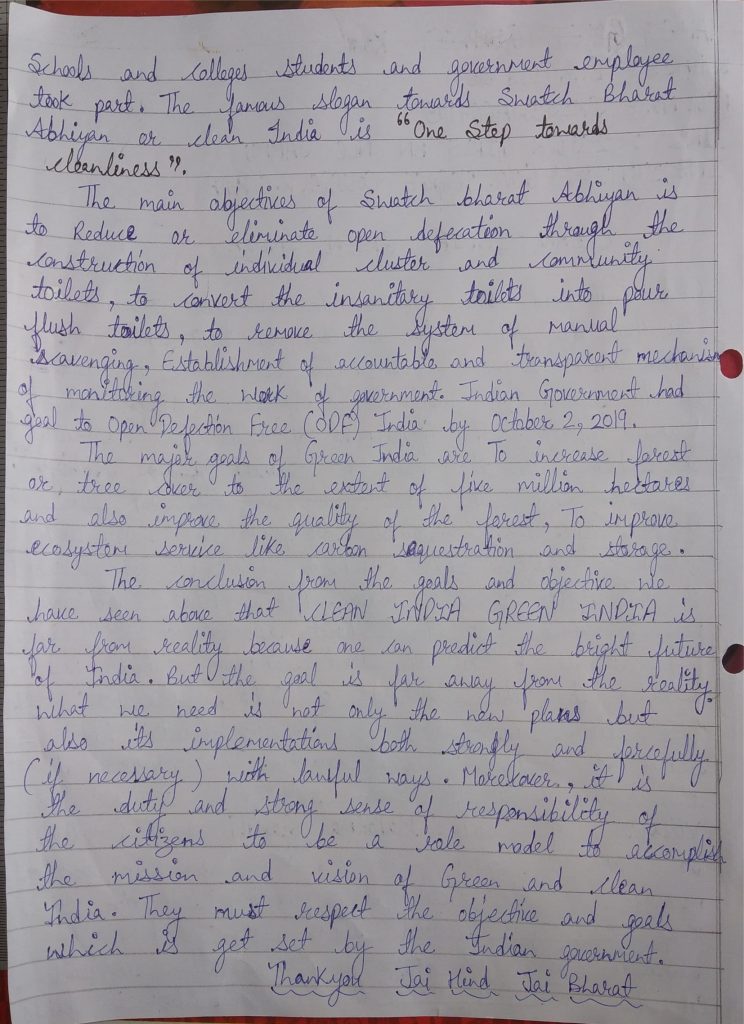 Schools and colleges students and government employee
took part. The famous slogan towards Swatch Bharat
Abhiyan or clean India is "One Step towards
cleanliness".
The main objectives of Swatch bharat Abhiyan is
to Reduce or eliminate open defecation through the
construction of individual cluster and community
toilets, to convert the insanitary toilets into pour
flush toilets, to remove the system of manual
scavenging, Establishment of accountable and transparent mechanism
of monitoring the work of government. Indian Government had
goal to Open Defection Free (ODF) India by October 2, 2019.
The major goals of Green India are To increase forest
or tree cover to the extent of five million hectares
and also improve the quality of the forest, To improve
ecosystem service like carbon sequestration and storage.
The conclusion from the goals and objective we
have seen above that CLEAN INDIA GREEN INDIA is
far from reality because one can predict the bright future
of India. But the goal is far away from the reality.
What we need is not only the new plans but
also its implementations both strongly and forcefully
(if necessary) with lawful ways. Moreover, it is
the duty and strong sense of responsibility of
the citizens to be a role model to accomplish
the mission and vision of Green and clean
India. They must respect the objective and goals
which is get set by the Indian government.
Thankyou Jai Hind Jai Bharat